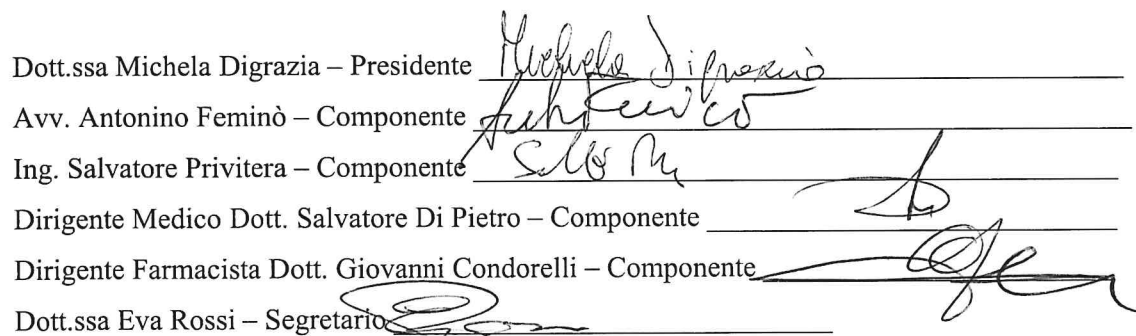 Dott.ssa Michela Digrazia – Presidente Michela Digrazia
Avv. Antonino Feminò – Componente
Ing. Salvatore Privitera – Componente
Dirigente Medico Dott. Salvatore Di Pietro – Componente
Dirigente Farmacista Dott. Giovanni Condorelli – Componente
Dott.ssa Eva Rossi – Segretario